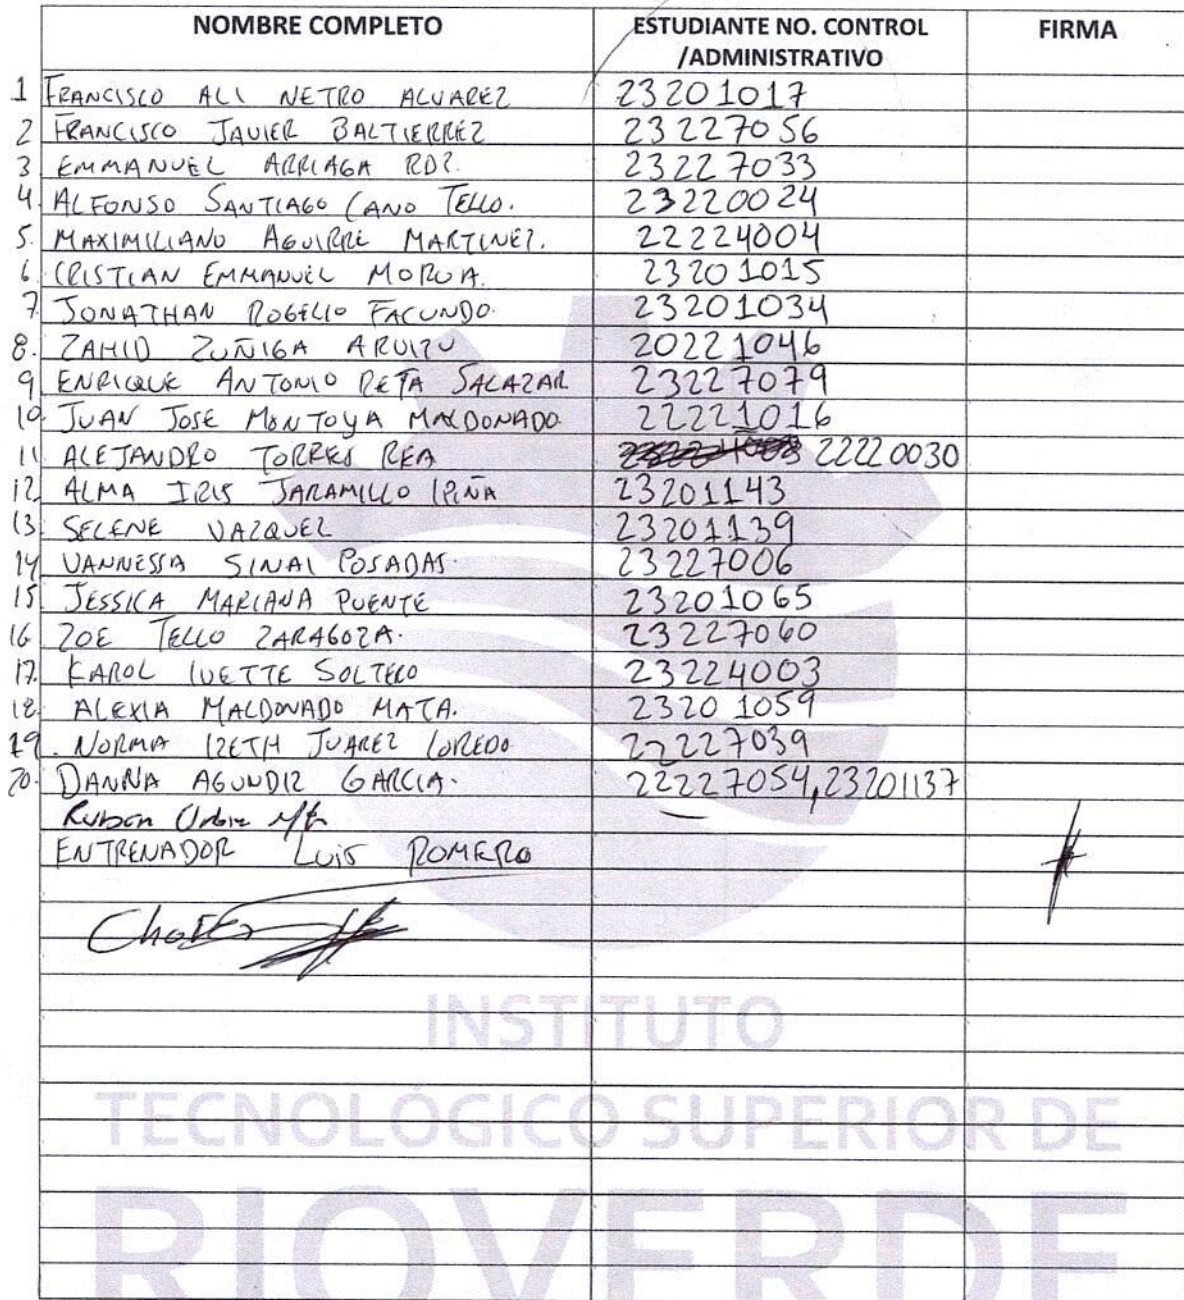 NOMBRE COMPLETO ESTUDIANTE NO. CONTROL /ADMINISTRATIVO FIRMA
1 FRANCISCO ALI NETRO ALVAREZ 23201017
2 FRANCISCO JAVIER BALTIERREZ 23227056
3 EMMANUEL ARRIAGA RDZ. 23227033
4. ALFONSO SANTIAGO CANO TELLO. 23220024
5. MAXIMILIANO AGUIRRE MARTINEZ. 22224004
6. CRISTIAN EMMANUEL MORUA. 23201015
7. JONATHAN ROGELIO FACUNDO. 23201034
8. ZAHID ZUÑIGA ARVIZU 20221046
9 ENRIQUE ANTONIO RETA SALAZAR 23227079
10 JUAN JOSE MONTOYA MALDONADO. 22221016
11 ALEJANDRO TORRES REA 22220030
12 ALMA IRIS JARAMILLO IZUÑA 23201143
13. SELENE VAZQUEZ 23201139
14 VANNESSA SINAI POSADAS. 23227006
15 JESSICA MARIANA PUENTE 23201065
16 ZOE TELLO ZARAGOZA. 23227060
17. KAROL IVETTE SOLTERO 23224003
18. ALEXIA MALDONADO MATA. 23201059
19. NORMA IZETH JUAREZ LOREDO. 22227039
20. DANNA AGUNDIZ GARCIA. 22227054, 23201137
Ruben
ENTRENADOR LUIS ROMERO
INSTITUTO
TECNOLÓGICO SUPERIOR DE
RIOVERDE